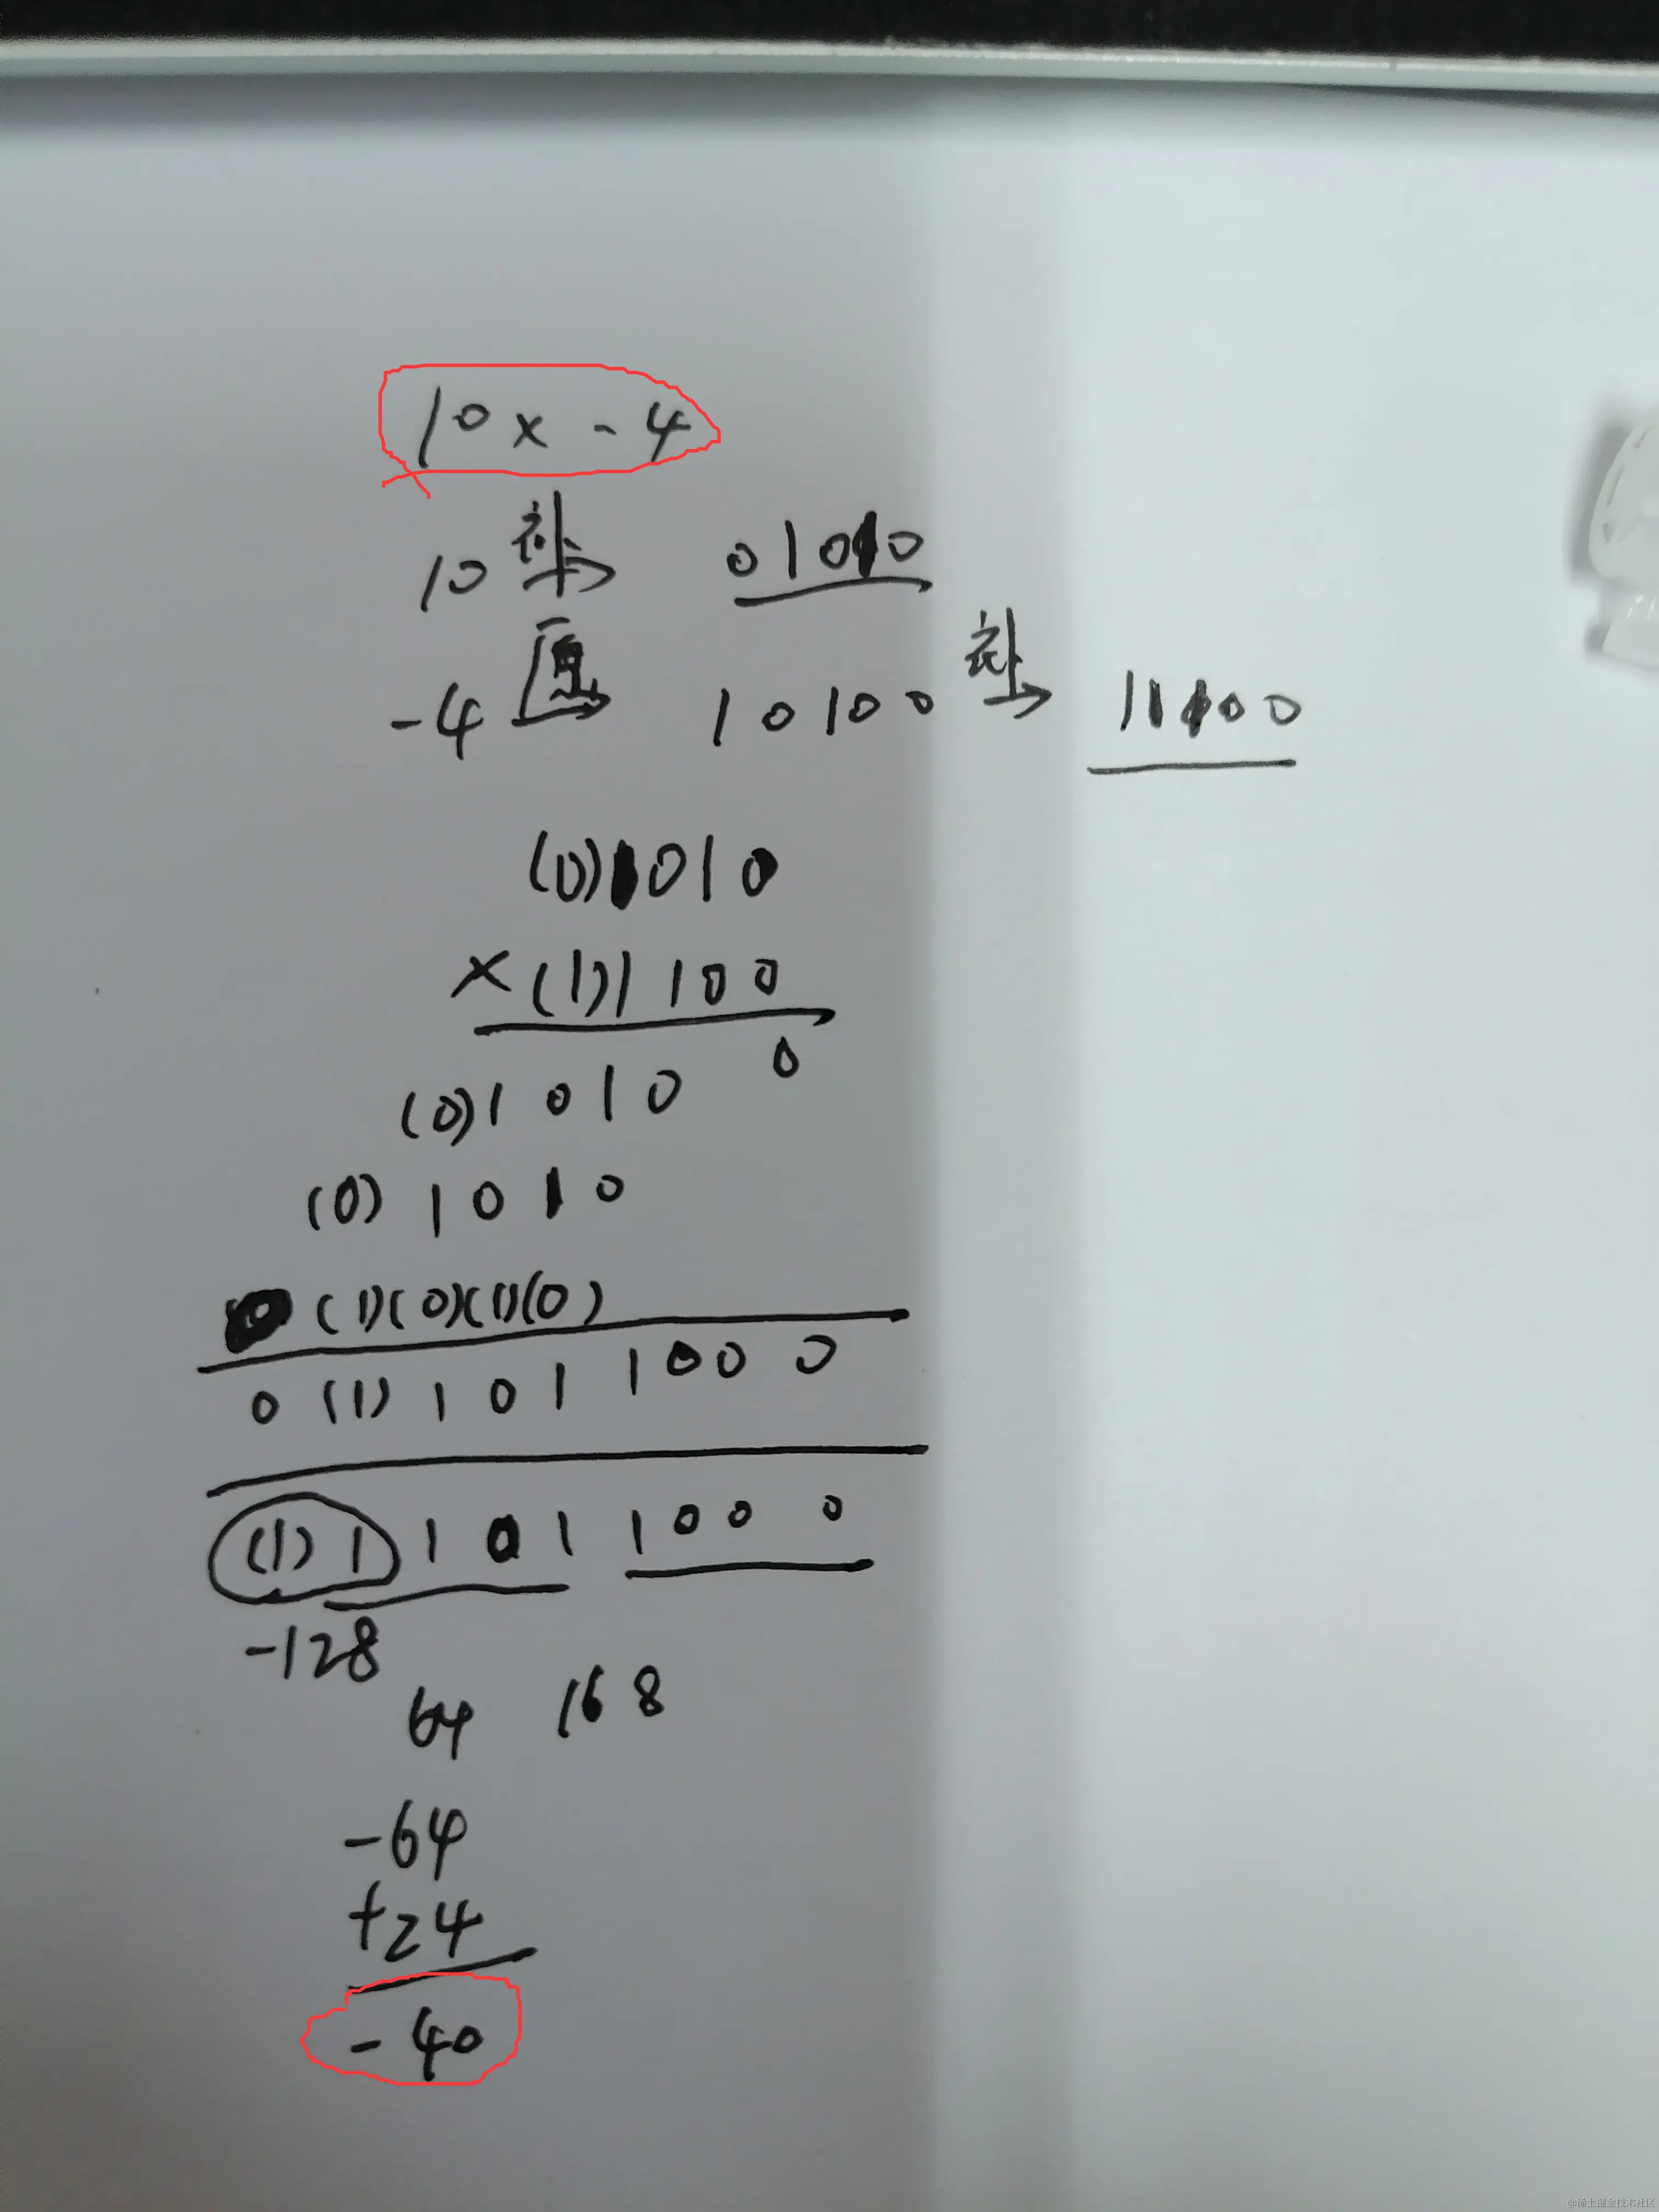 10 x - 4
10 补→ 01010
-4 原→ 10100 补→ 11100
(0)1010
×(1)1100
0
(0)1010
(0)1010
0(1)(0)(1)(0)
0(1)1011000
(1)11011000
-128
64 16 8
-64
+24
-40
@稀土掘金技术社区